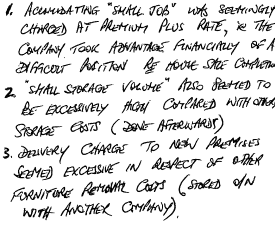 1. ACCUMULATING "SMALL JOB" WAS SEEMINGLY
CHARGED AT PREMIUM PLUS RATE, & THE
COMPANY TOOK ADVANTAGE FINANCIALLY OF A
DIFFICULT POSITION RE HOUSE SALE COMPLETION
2. "SMALL STORAGE VOLUME" ALSO SEEMED TO
BE EXCESSIVELY HIGH COMPARED WITH OTHER
STORAGE COSTS (DONE AFTERWARDS)
3. DELIVERY CHARGE TO NEW PREMISES
SEEMED EXCESSIVE IN RESPECT OF OTHER
FURNITURE REMOVAL COSTS (STORED O/N
WITH ANOTHER COMPANY).